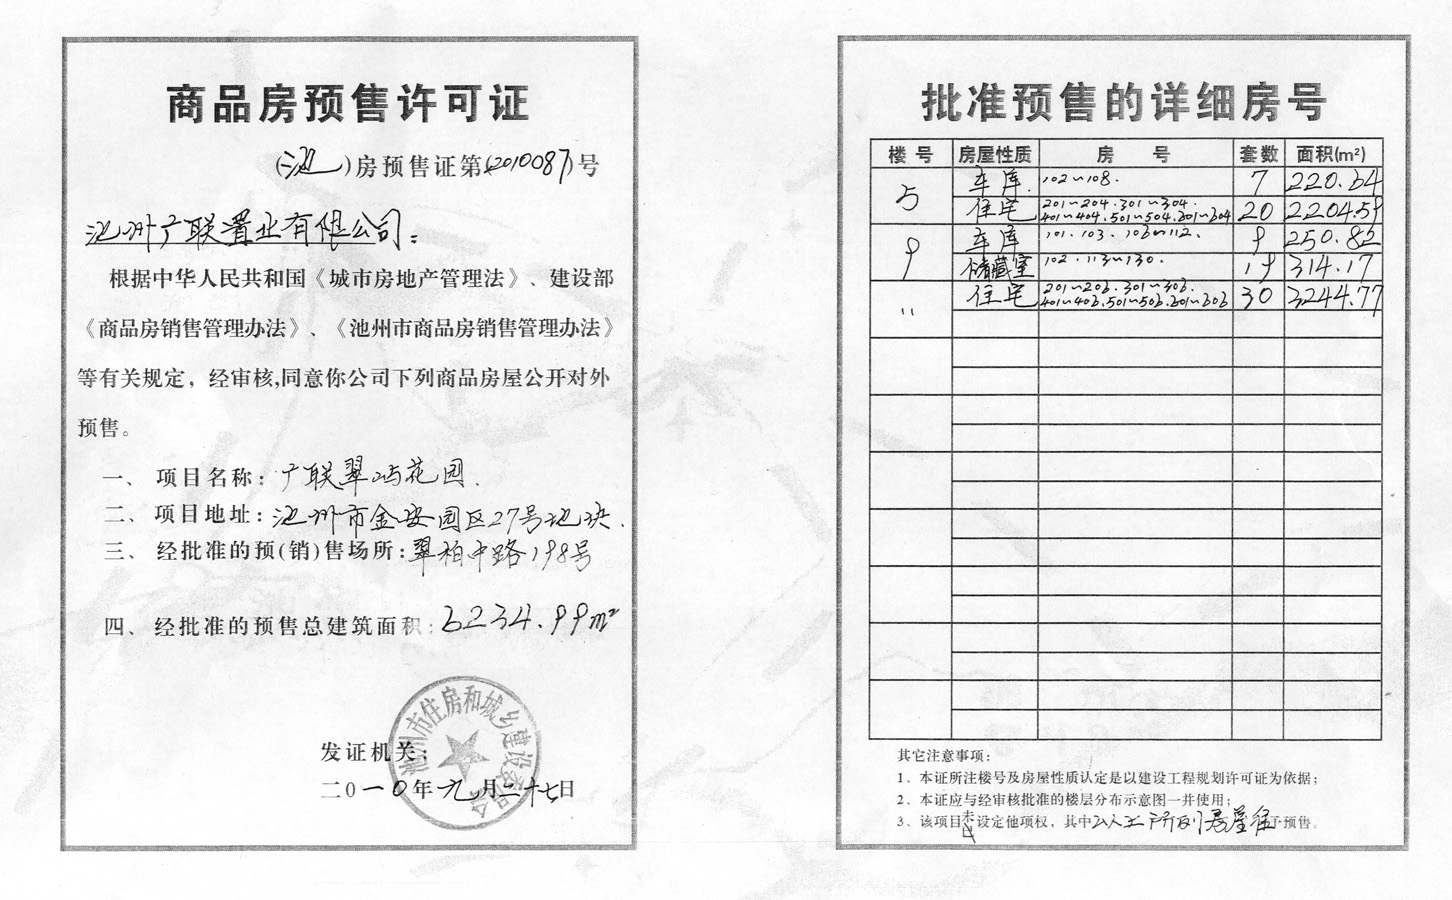 商品房预售许可证
(池)房预售证第(2010087)号
池州广联置业有限公司：
根据中华人民共和国《城市房地产管理法》、建设部
《商品房销售管理办法》、《池州市商品房销售管理办法》
等有关规定，经审核,同意你公司下列商品房屋公开对外
预售。
一、项目名称：广联翠屿花园.
二、项目地址：池州市金安园区27号地块.
三、经批准的预(销)售场所：翠柏中路198号
四、经批准的预售总建筑面积：6234.99m²
发证机关：
二〇一〇年九月二十七日
池州市住房和城乡建设委员会
批准预售的详细房号
楼号 房屋性质 房号 套数 面积(m²)
5 车库. 102~108. 7 220.64
住宅 201~204.301~304.
401~404.501~504.601~604 20 2204.59
9 车库 101.103.106~112. 9 250.82
储藏室 102.113~130. 19 314.17
" 住宅 201~206.301~306.
401~406.501~506.601~606 30 3244.77
其它注意事项：
1、本证所注楼号及房屋性质认定是以建设工程规划许可证为依据；
2、本证应与经审核批准的楼层分布示意图一并使用；
3、该项目未设定他项权，其中以上所列房屋准予预售。